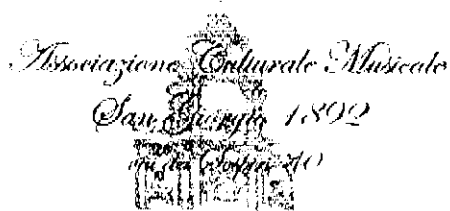 Associazione Culturale Musicale
San Giorgio 1892